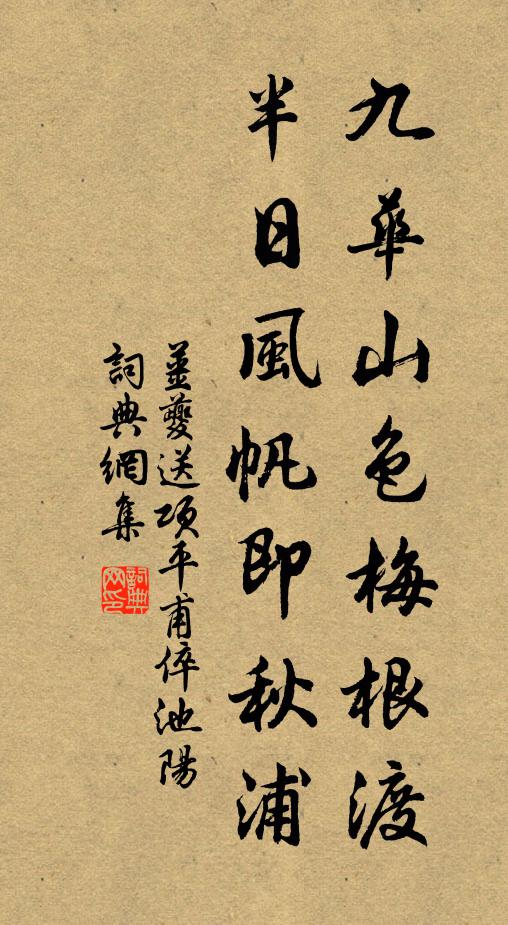 九華山色梅根渡
半日風帆即秋浦
姜夔送項平甫倅池陽
詞典網集
詞典网印